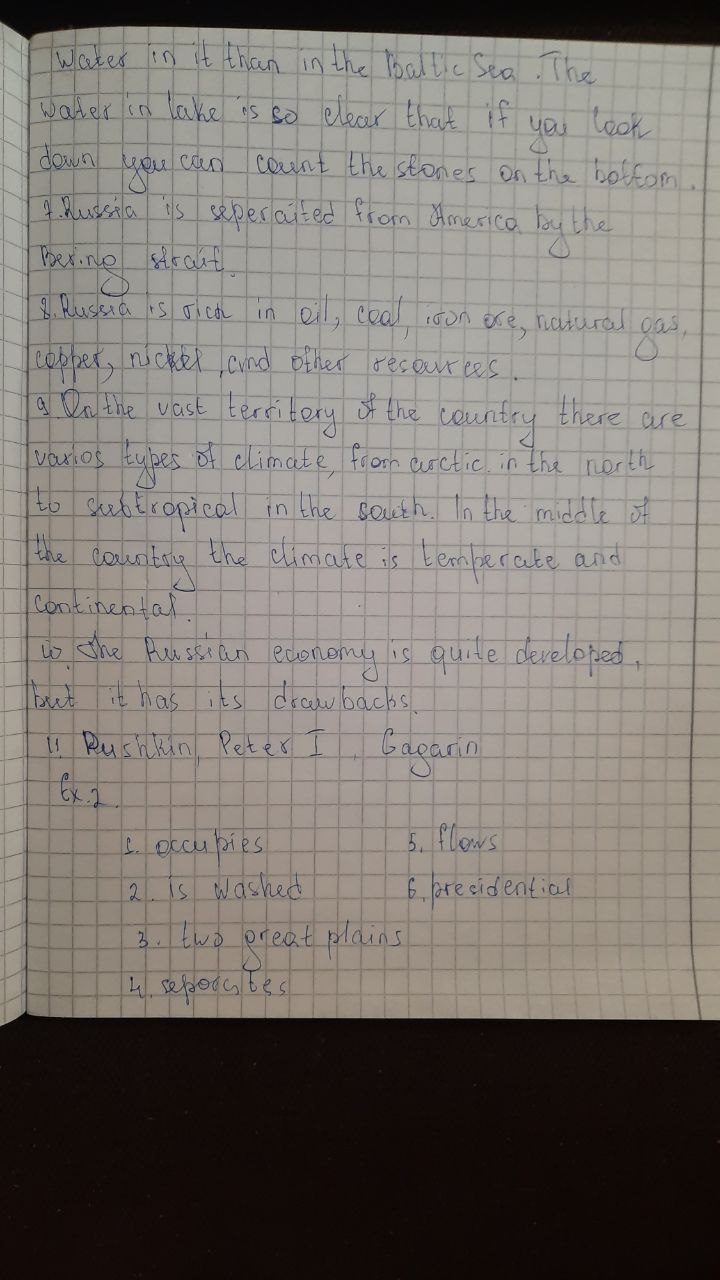 Water in it than in the Baltic Sea. The
Water in lake is so clear that if you look
down you can count the stones on the bottom.
7. Russia is seperaited from America by the
Bering strait.
8. Russia is rich in oil, coal, iron ore, natural gas,
copper, nickel, and other resources.
9. On the vast territory of the country there are
varios types of climate, from arctic in the north
to subtropical in the south. In the middle of
the country the climate is temperate and
continental.
10. The Russian economy is quite developed,
but it has its drawbacks.
11. Pushkin, Peter I, Gagarin
Ex.2.
1. occupies 5. flows
2. is washed 6. presidential
3. two great plains
4. seporates